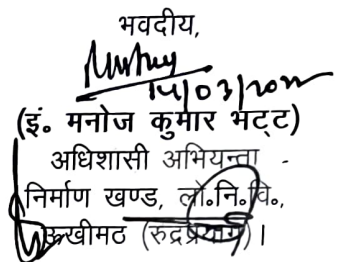 भवदीय,
14/03/20
(इं० मनोज कुमार भट्ट)
अधिशासी अभियन्ता
निर्माण खण्ड, लो०नि०वि०,
ऊखीमठ (रुद्रप्रयाग)।